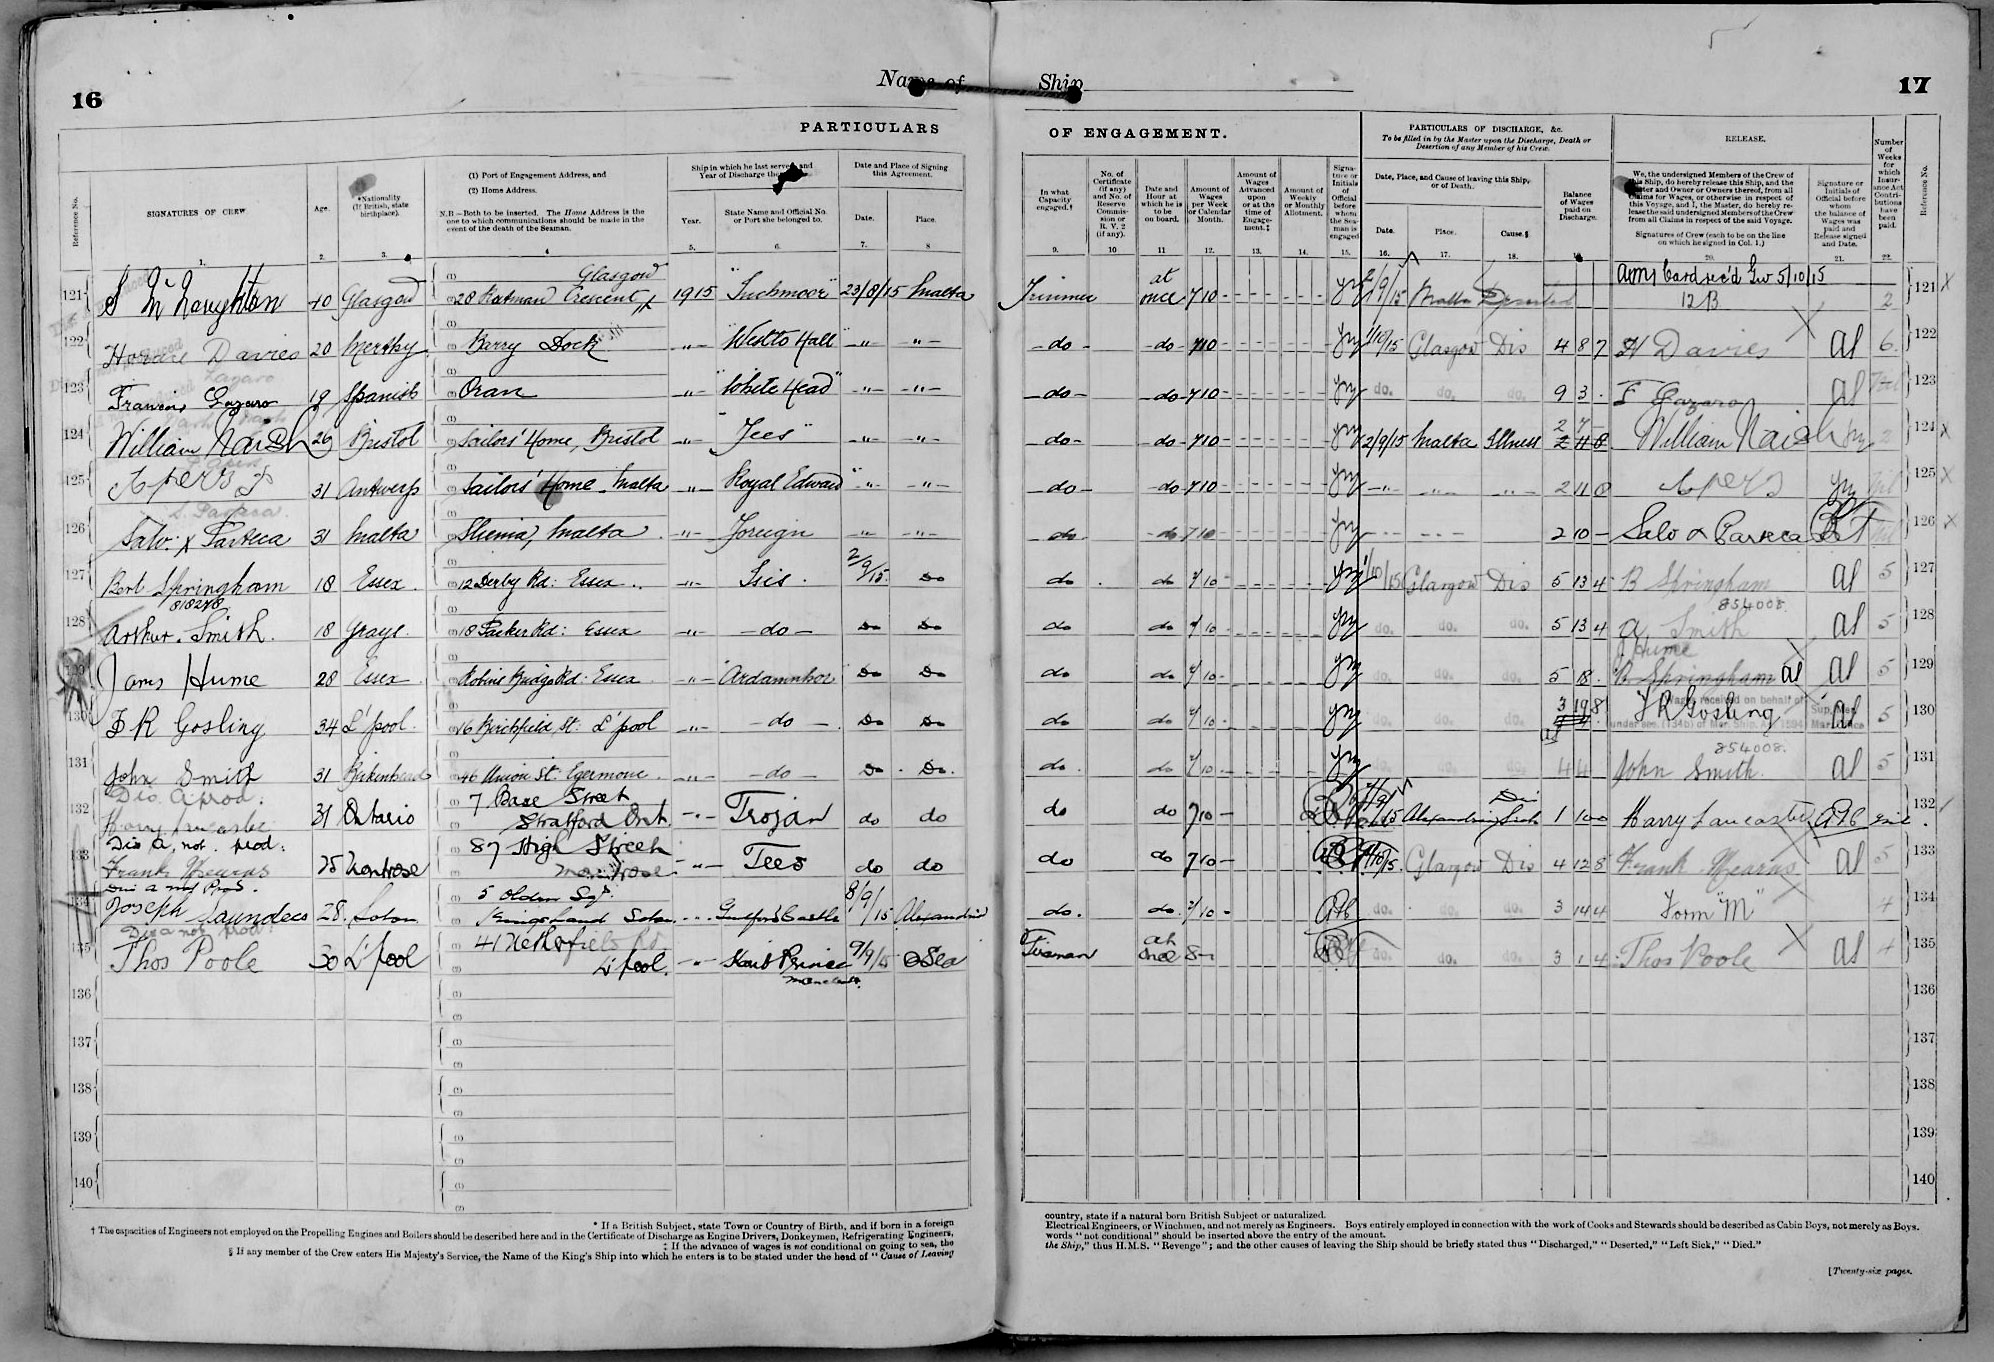 16
Name of Ship
17
PARTICULARS OF ENGAGEMENT.
PARTICULARS OF DISCHARGE, &c.
To be filled in by the Master upon the Discharge, Death or Desertion of any Member of his Crew.
RELEASE.
Reference No.
SIGNATURES OF CREW
Age.
*Nationality (If British, state birthplace).
(1) Port of Engagement Address, and
(2) Home Address.
N.B.—Both to be inserted. The Home Address is the one to which communications should be made in the event of the death of the Seaman.
Ship in which he last served, and Year of Discharge
Year.
State Name and Official No. or Port she belonged to.
Date and Place of Signing this Agreement.
Date.
Place.
In what Capacity engaged.†
No. of Certificate (if any) and No. of Reserve Commission or R. V. 2 (if any).
Date and Hour at which he is to be on board.
Amount of Wages per Week or Calendar Month.
Amount of Wages Advanced upon or at the time of Engagement.‡
Amount of Weekly or Monthly Allotment.
Signature or Initials of Official before whom the Seaman is engaged
Date, Place, and Cause of leaving this Ship, or of Death.
Date.
Place.
Cause.§
Balance of Wages paid on Discharge.
We, the undersigned Members of the Crew of this Ship, do hereby release this Ship, and the Master and Owner or Owners thereof, from all Claims for Wages, or otherwise in respect of this Voyage, and I, the Master, do hereby release the said undersigned Members of the Crew from all Claims in respect of the said Voyage.
Signatures of Crew (each to be on the line on which he signed in Col. 1.)
Signature or Initials of Official before whom the balance of Wages was paid and Release signed and Date.
Number of Weeks for which Insurance Act Contributions have been paid.
Reference No.
1. 2. 3. 4 5. 6. 7. 8 9. 10 11 12. 13. 14. 15. 16. 17. 18. 20. 21. 22.
121 S McNaughton 40 Glasgow 28 Crescent Glasgow 1915 "Inchmoor" 23/8/15 Malta Trimmer at once 7 10 - /9/15 Malta Deserted 5/10/15 12 B 2 121
122 Davies 20 Merthyr Barry Dock -"- "Westto Hall" -"- -"- -do- -do- 7 10 - 1/10/15 Glasgow Dis 4 8 7 H Davies al 6 122
123 Lazaro 19 Spanish Oran -"- "White Head" -"- -"- -do- -do- 7 10 - do. do. do. 9 3 . F Lazaro al 123
124 William Naish 29 Bristol Sailors' Home, Bristol -"- "Tees" -"- -"- -do- -do- 7 10 - 2/9/15 Malta Illness 2 7 - William Naish 2 124
125 31 Antwerp Sailors' Home, Malta -"- "Royal Edward" -"- -"- -do- -do- 7 10 - -"- -"- -"- 2 11 0 125
126 Salv. x Parseca 31 Malta Sliema, Malta -"- Foreign -"- -"- do do 7 10 - 2 10 - Salv x Parseca 126
127 Bert Springham 18 Essex 12 Derby Rd: Essex -"- Isis 2/9/15 Do do do 7/10 - 1/10/15 Glasgow Dis 5 13 4 B Springham al 5 127
818278
854008
128 Arthur Smith 18 Grays 18 Parker Rd: Essex -"- -do- Do Do do do 7/10 - do. do. do. 5 13 4 A. Smith al 5 128
J Hume
129 James Hume 28 Essex Essex -"- Ardamhor Do Do do do 7/10 - 5 18 . B Springham al al 5 129
130 F R Gosling 34 L'pool 16 Birchfield St: L'pool -"- -do- Do Do do do 7/10 - do. do. do. 3 19 8 F R Gosling al 5 130
854008
131 John Smith 31 Birkenhead 46 Union St: Egermont -"- -do- Do Do. do do 7/10 - do. do. do. 4 4 John Smith al 5 131
132 Harry Lancaster 31 Ontario 7 Base Street Stratford Ont -"- Trojan do do do do 7 10 - Alexandria 1 10 0 Harry Lancaster 132
Dis A, not prod:
133 Frank Mearns 25 Montrose 87 High Street Montrose -"- Tees do do do do 7 10 - /10/15 Glasgow Dis 4 12 8 Frank Mearns al 5 133
Dis A not Prod.
134 Joseph Saunders 28 Soton 5 Kingsland Soton -"- Guilford Castle 8/9/15 Alexandria do. do. 7/10 - do. do. do. 3 14 4 Form "M" 4 134
Dis A not prod:
135 Thos Poole 30 L'pool 41 Netherfield Rd L'pool. -"- Prince 9/9/15 @Sea Fireman at once 8 - do. do. do. 3 1 4 Thos Poole al 4 135
136 136
137 137
138 138
139 139
140 140
* If a British Subject, state Town or Country of Birth, and if born in a foreign country, state if a natural born British Subject or naturalized.
† The capacities of Engineers not employed on the Propelling Engines and Boilers should be described here and in the Certificate of Discharge as Engine Drivers, Donkeymen, Refrigerating Engineers, Electrical Engineers, or Winchmen, and not merely as Engineers. Boys entirely employed in connection with the work of Cooks and Stewards should be described as Cabin Boys, not merely as Boys.
‡ If the advance of wages is not conditional on going to sea, the words "not conditional" should be inserted above the entry of the amount.
§ If any member of the Crew enters His Majesty's Service, the Name of the King's Ship into which he enters is to be stated under the head of "Cause of Leaving the Ship," thus H.M.S. "Revenge"; and the other causes of leaving the Ship should be briefly stated thus "Discharged," "Deserted," "Left Sick," "Died."
[Twenty-six pages.